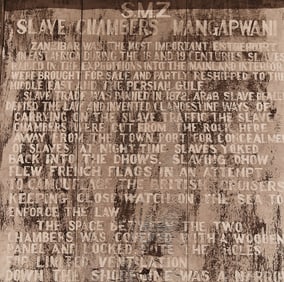 S.M.Z
SLAVE CHAMBERS MANGAPWANI
ZANZIBAR WAS THE MOST IMPORTANT ENTREPORT
IN EAST AFRICA DURING THE 18 AND 19 CENTURIES SLAVES
IN THE EXPEDITIONS INTO THE MAINLAND INTERIOR
WERE BROUGHT FOR SALE AND PARTLY RESHIPPED TO THE
MIDDLE EAST AND THE PERSIAN GULF
SLAVE TRADE WAS BANNED IN 1872 ARAB SLAVE DEALERS
THE LAW AND INVENTED CLANDESTINE WAYS OF
CARRYING ON THE SLAVE TRAFFIC THE SLAVE
CHAMBERS WERE CUT FROM THE ROCK HERE
AWAY FROM THE TOWN PORT FOR CONCEALMENT
OF SLAVES AT NIGHT TIME SLAVES YOKED
BACK INTO THE DHOWS. SLAVING DHOW
FLEW FRENCH FLAGS IN AN ATTEMPT
TO CAMOUFLAGE THE BRITISH CRUISERS
KEEPING CLOSE WATCH ON THE SEA TO
ENFORCE THE LAW
THE SPACE BETWEEN THE TWO
CHAMBERS WAS COVERED WITH A WOODEN
PANEL AND LOCKED NOTE THE HOLES
FOR LIMITED VENTILATION
DOWN THE SHORELINE WAS A NARROW